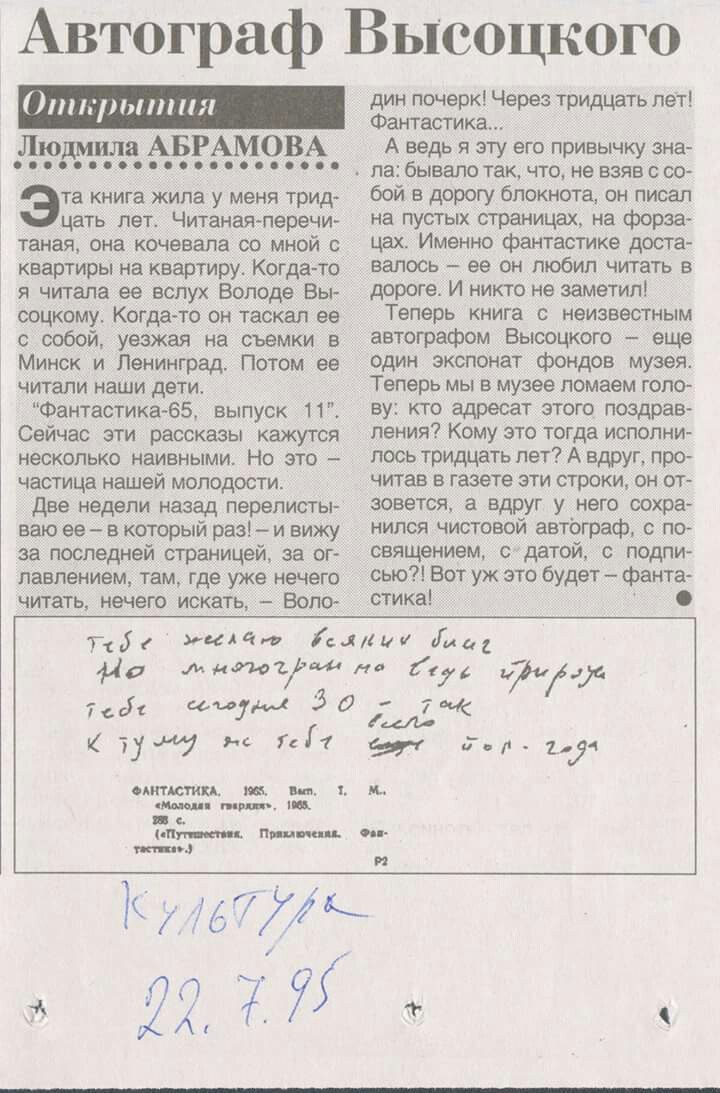 Автограф Высоцкого
Открытия
Людмила АБРАМОВА
Эта книга жила у меня трид-
цать лет. Читаная-перечи-
таная, она кочевала со мной с
квартиры на квартиру. Когда-то
я читала ее вслух Володе Вы-
соцкому. Когда-то он таскал ее
с собой, уезжая на съемки в
Минск и Ленинград. Потом ее
читали наши дети.
“Фантастика-65, выпуск 11”.
Сейчас эти рассказы кажутся
несколько наивными. Но это –
частица нашей молодости.
Две недели назад перелисты-
ваю ее – в который раз! – и вижу
за последней страницей, за ог-
лавлением, там, где уже нечего
читать, нечего искать, – Воло-
дин почерк! Через тридцать лет!
Фантастика...
А ведь я эту его привычку зна-
ла: бывало так, что, не взяв с со-
бой в дорогу блокнота, он писал
на пустых страницах, на форза-
цах. Именно фантастике доста-
валось – ее он любил читать в
дороге. И никто не заметил!
Теперь книга с неизвестным
автографом Высоцкого – еще
один экспонат фондов музея.
Теперь мы в музее ломаем голо-
ву: кто адресат этого поздрав-
ления? Кому это тогда исполни-
лось тридцать лет? А вдруг, про-
читав в газете эти строки, он от-
зовется, а вдруг у него сохра-
нился чистовой автограф, с по-
священием, с датой, с подпи-
сью?! Вот уж это будет – фанта-
стика!
тебе желаю всяких благ
Но многогранна ведь природа
тебе сегодня 30 – так
всего
к тому же тебе пол-года
ФАНТАСТИКА, 1965. Вып. I. М.,
«Молодая гвардия», 1965.
288 с.
(«Путешествия. Приключения. Фан-
тастика».)
Р2
Культура
22.7.95